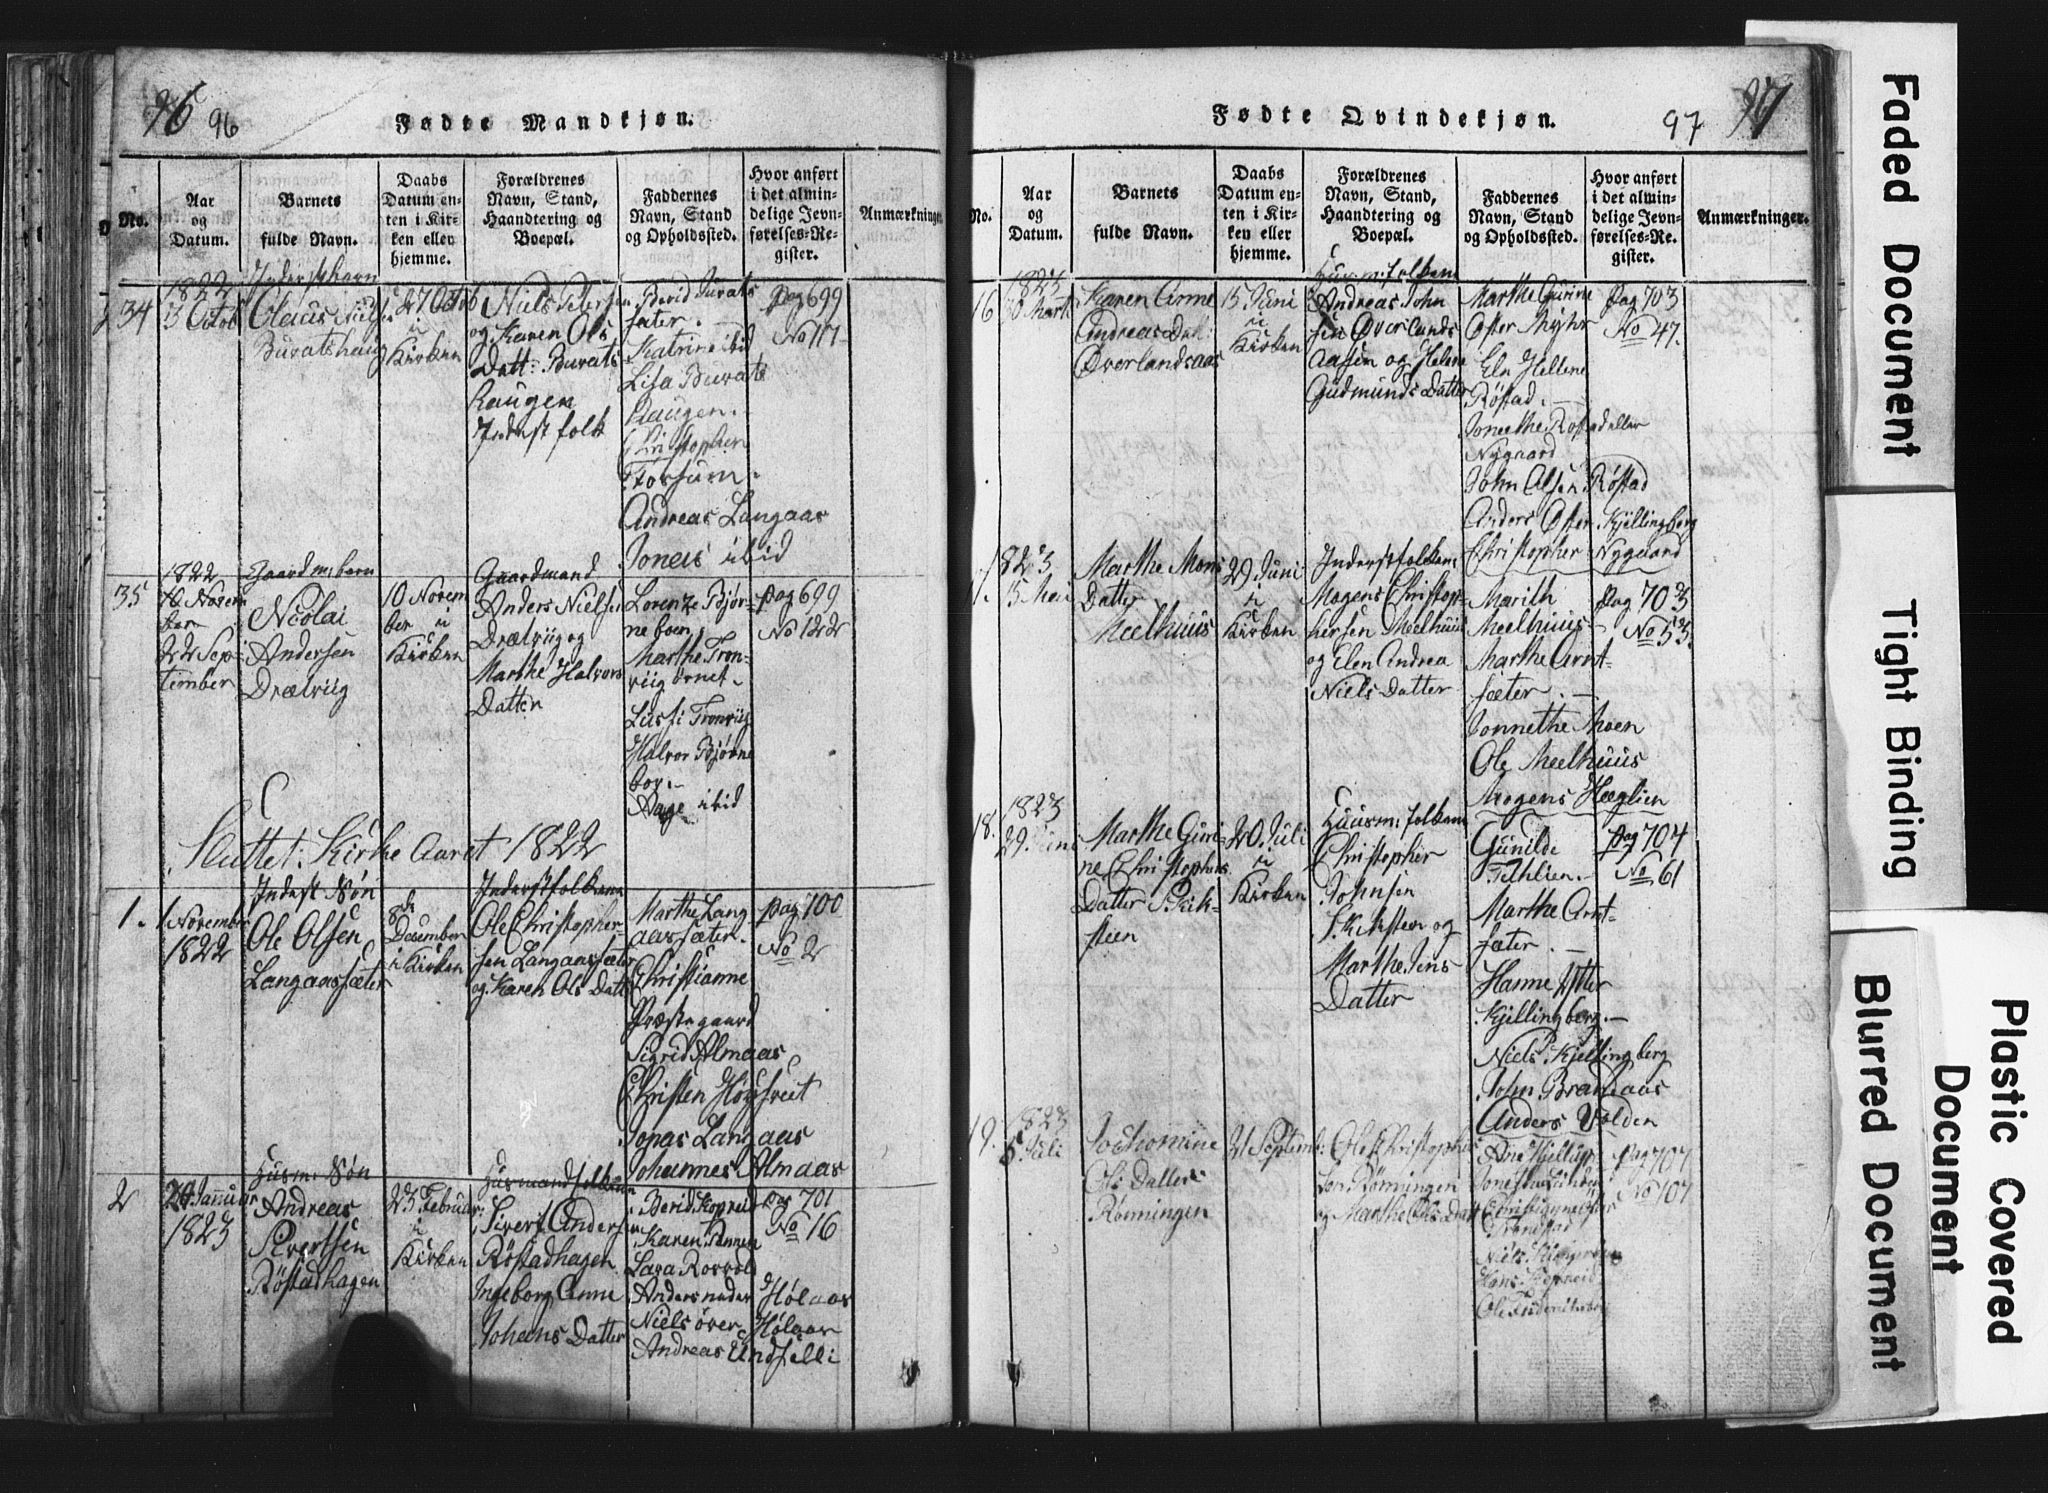 96 96
Fødte Mandkjøn.
No.
Aar
og
Datum.
Barnets
fulde Navn.
Daabs
Datum en-
ten i Kir-
ken eller
hjemme.
Forældrenes
Navn, Stand,
Haandtering og
Boepæl.
Faddernes
Navn, Stand
og Opholdssted.
Hvor anført
i det almin-
delige Jevn-
førelses-Re-
gister.
Anmærkninger.
34
1822
13 Octob
Inderstbarn
Olaus Nielsen
Buratshaug
27 Octob
i
Kirken
Niels Petersen
og Karen Ols
Datt: Burats
haugen
Inderstfolk
Berid Burats
sæter.
Katrine ibid
Lisa Burats
haugen.
Christopher
Forsum.
Andreas Langaas
Jonas ibid
Pag 699
No 117
35
1822
22 Sep-
tember
Gaardm: barn
Nicolai
Andersen
Drætviig
10 Novem
ber i
Kirken
Gaardmand
Anders Nielsen
Drætviig og
Marthe Halvors
Datter
Lorenze Bjør-
ne boer
Marthe Tron-
viig
Lussi Tronviig
Halvor Bjørne
bor.
Aage ibid
Pag 699
No 122
Sluttet Kirke Aaret 1822
1.
1 November
1822
Inderst Søn
Ole Olsen
Langaassæter
8de
December
i Kirken
Inderstfolkene
Ole Christopher-
sen Langaassæter
og Karen Ols Datt
Marthe Lang
aassæter.
Christianne
Præstegaard
Sigrid Almaas
Christen Høgsveet
Jonas Langaas
Johannes Almaas
Pag 700
No 2
2
29 Januar
1823
Husm: Søn
Andreas
Sivertsen
Røstadhagen
23 Februar
i
Kirken
Husmandfolkene
Sivert Andersen
Røstadhagen
Ingeborg Anna
Johans Datter
Berid Kopreid
Karen
Lava Rosvold
Anders neder Hølaas
Niels øver Hølaas
Andreas Undselli
Pag 701
No 16
Fødte Qvindekjøn.
97 97
No.
Aar
og
Datum.
Barnets
fulde Navn.
Daabs
Datum en-
ten i Kir-
ken eller
hjemme.
Forældrenes
Navn, Stand,
Haandtering og
Boepæl.
Faddernes
Navn, Stand
og Opholdssted.
Hvor anført
i det almin-
delige Jevn-
førelses-Re-
gister.
Anmærkninger.
16
1823
30 Marts
Karen Anne
Andreas Dat:
Øverlandsaas
15 Juni
i
Kirken
Huusm: folkene
Andreas John
sen Øverlands
aasen og Helene
Gudmunds Datter
Marthe Gurine
Øster Myhr
Eln Hellene
Røstad.
Jonethe Røstad eller
Nygaard
John Olsen Røstad
Anders Øster Kjellingberg
Christopher Nygaard
Pag 703
No 47.
17.
1823
15 Mai
Marthe Mons
Datter
Meelhuus
29 Juni
i
Kirken
Inderstfolkene
Mogens Christop-
hersen Meelhuus
og Elen Andrea
Niels Datter
Marith
Meelhuus
Marthe Arnt-
sæter.
Jonnethe Moen
Ole Meelhuus
Mogens Hæglien
Pag 703
No 53.
18.
1823
29 Juni
Marthe Guri-
ne Christophers
Datter Skik-
steen
20 Juli
i
Kirken
Huusm: folkene
Christopher
Johnsen
Skiksteen og
Marthe Jens
Datter
Gunilde
Fihlien.
Marthe Arnt-
sæter.
Hanne Ytter
Kjellingberg.
Niels Kjellingberg
John Brandaas
Anders Volden
Pag 704
No 61
19.
1823
6 Juli
Jochomine
Ols Datter
Rønningen
21 Septem:
Ole Christopher
sen Rønningen
og Marthe Ols Datt
Ane Hiellup
Jonetha Lunden
Hans Kopreid
Pag 707
No 107
Faded Document
Tight Binding
Plastic Covered
Document
Blurred Document